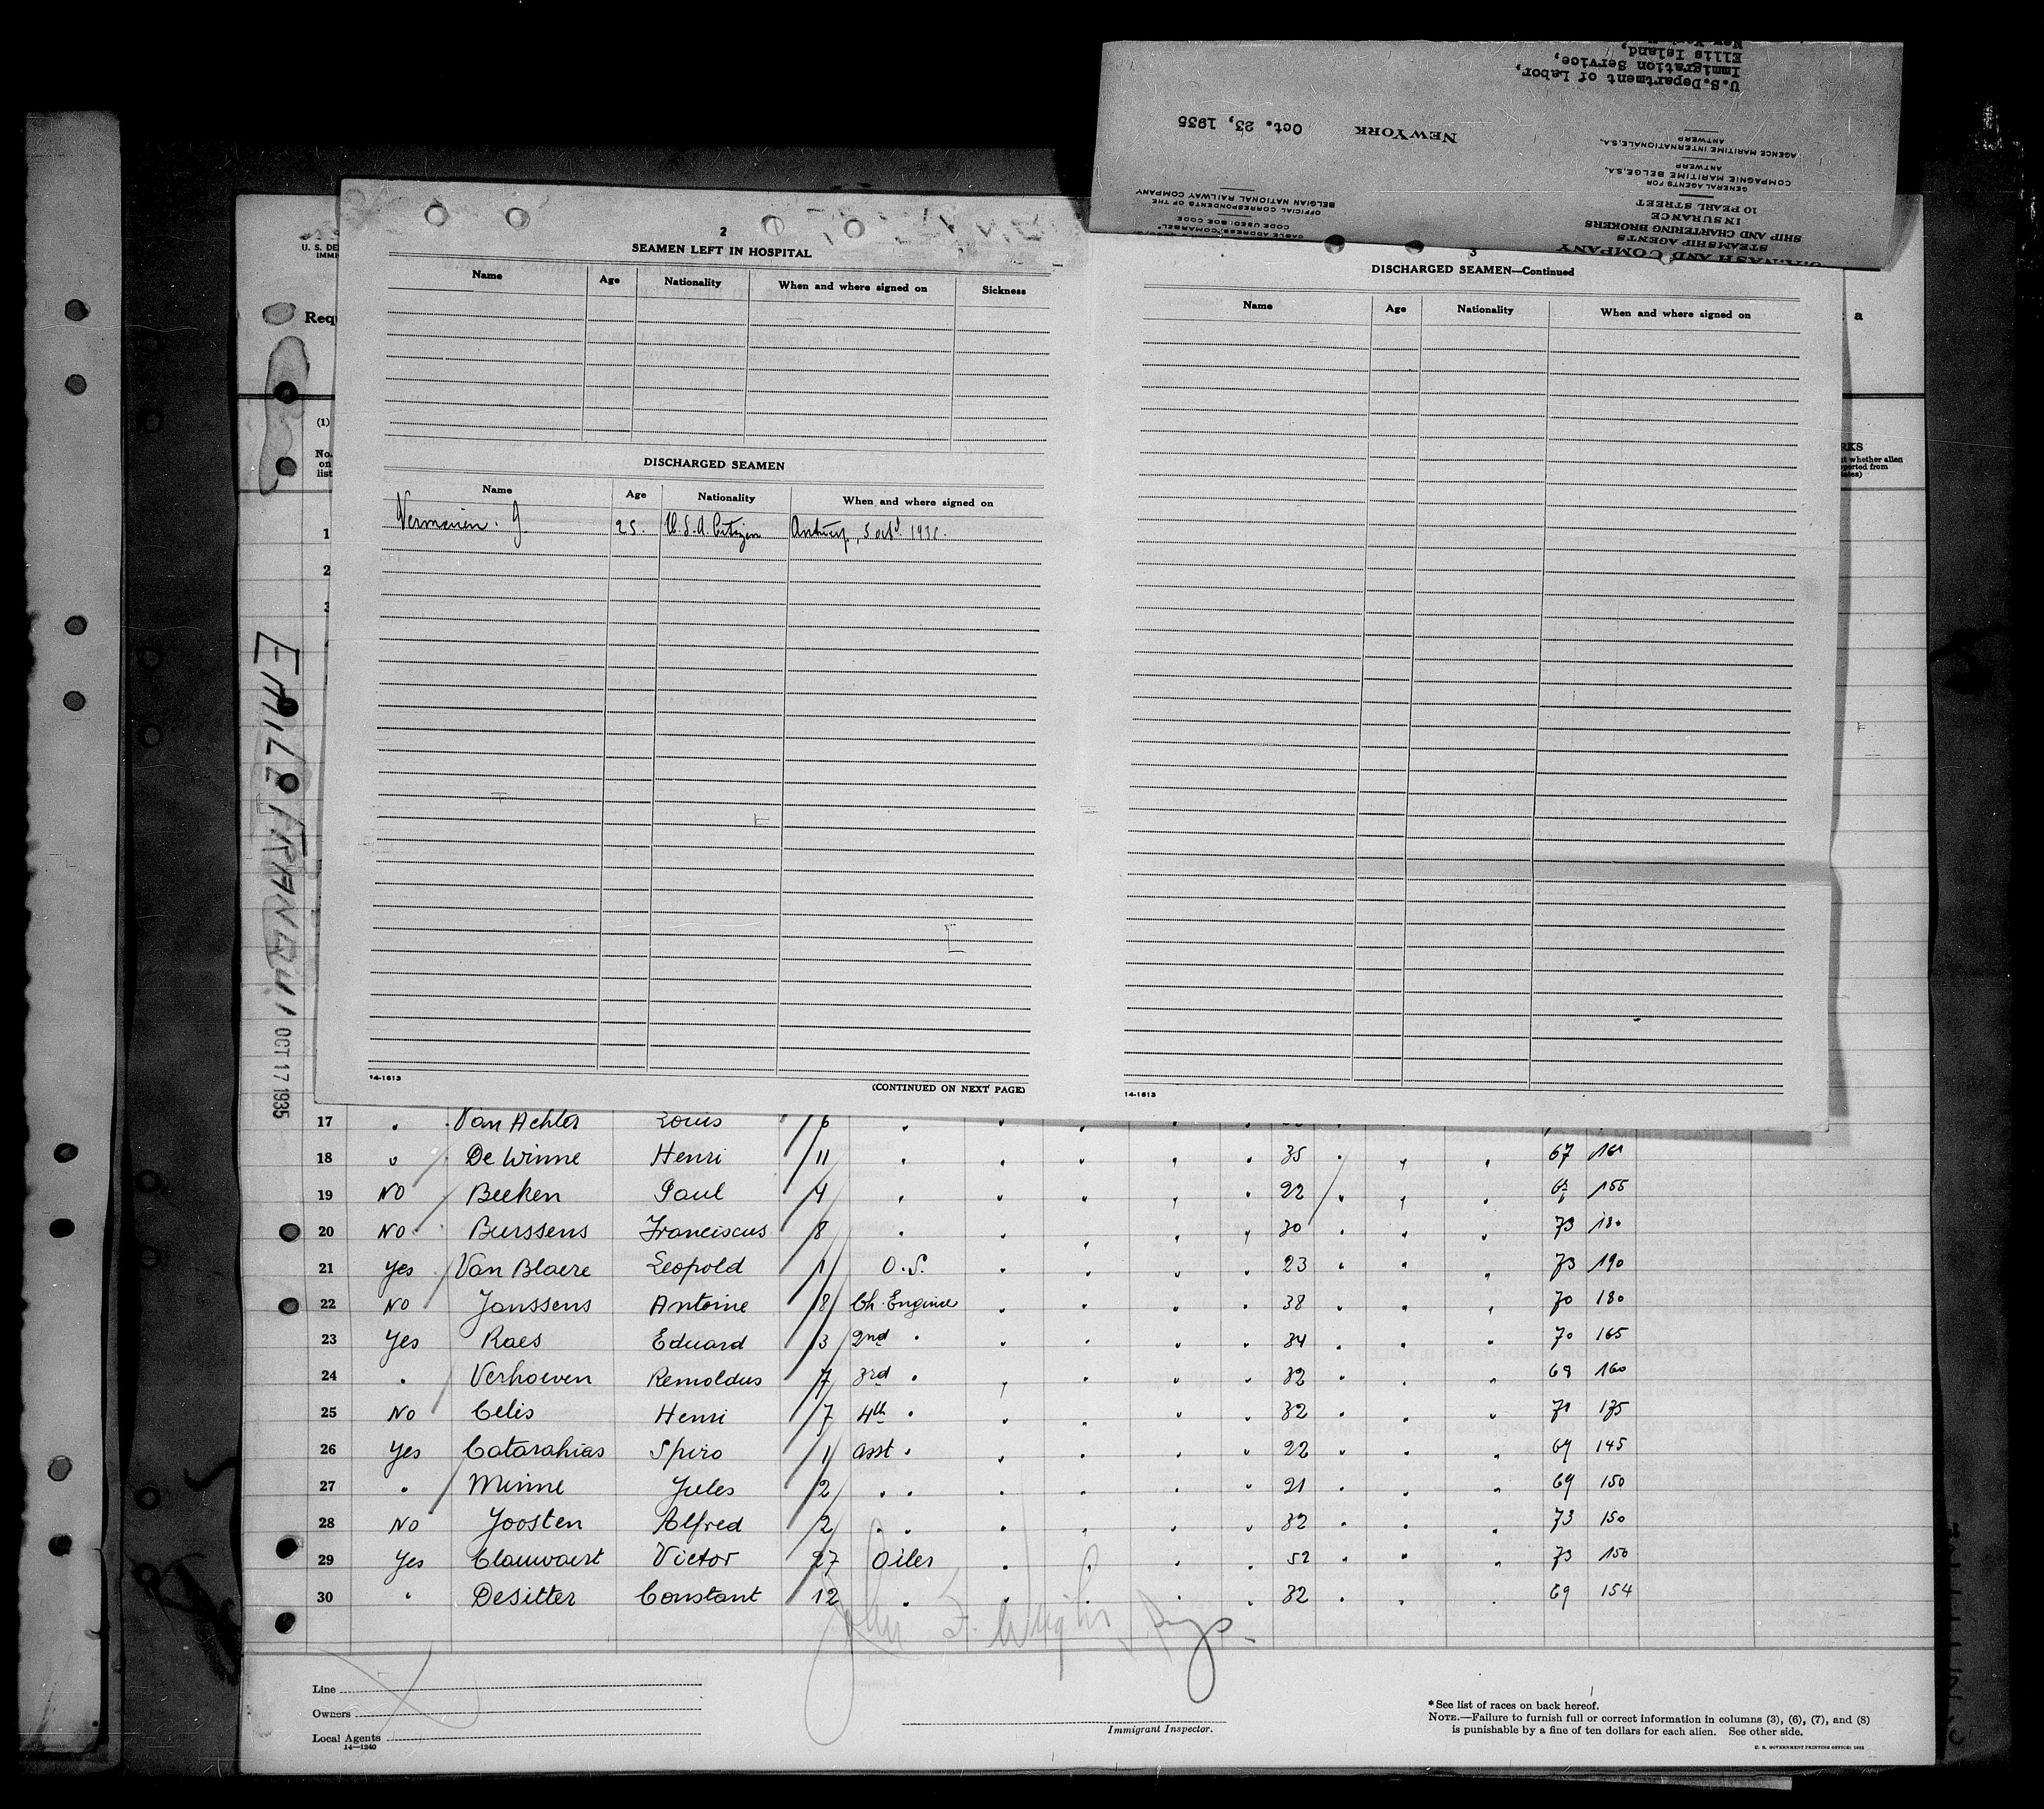 U.S.Department of Labor,
Immigration Service,
Ellis Island,
NEW YORK Oct. 23, 1935
NASH AND COMPANY
STEAMSHIP AGENTS
SHIP AND CHARTERING BROKERS
INSURANCE
10 PEARL STREET
GENERAL AGENTS FOR
COMPAGNIE MARITIME BELGE, S.A.
ANTWERP
AGENCE MARITIME INTERNATIONALE, S.A.
ANTWERP
CABLE ADDRESS "COMARBEL"
CODE USED: BOE CODE
OFFICIAL CORRESPONDENTS OF THE
BELGIAN NATIONAL RAILWAY COMPANY
2
SEAMEN LEFT IN HOSPITAL
Name Age Nationality When and where signed on Sickness
DISCHARGED SEAMEN
Name Age Nationality When and where signed on
25. U.S.A. Citizen Antwerp, 5 oct
14-1613
(CONTINUED ON NEXT PAGE)
3
DISCHARGED SEAMEN—Continued
Name Age Nationality When and where signed on
14-1613
U. S. DE
IMMI
Requ
a
(1)
No.
on
list
RKS
whether alien
ported from
1
2
3
EMILE FRANQUI OCT 17 1935
17 " Van Achter Louis 6 " " " " " "
18 " De Winne Henri 11 " " " " " " 35 " " " 67 161
19 NO Beeken Paul 4 " " " " " " 22 " " " 155
20 NO Burssens Franciscus 8 " " " " " " 30 " " " 73 180
21 Yes Van Blaere Leopold 1 O.S. " " " " " 23 " " " 73 190
22 NO Janssens Antoine 8 Ch. Engineer " " " " " 38 " " " 70 180
23 Yes Raes Eduard 3 2nd " " " " " " 34 " " " 70 165
24 " Verhoeven Remoldus 7 3rd " " " " " " 32 " " " 68 160
25 NO Celis Henri 7 4th " " " " " " 32 " " " 71 175
26 Yes Catarahias Spiro 1 asst " " " " " " 22 " " " 69 145
27 " Minne Jules 2 " " " " " " " 21 " " " 69 150
28 NO Joosten Alfred 2 " " " " " " " 32 " " " 73 150
29 Yes Clauwaert Victor 27 Oiler " " " " " 52 " " " 73 150
30 " DeSitter Constant 12 " " " " " " 32 " " " 69 154
John F. Wright
Line
Owners
Local Agents
14—1240
Immigrant Inspector.
*See list of races on back hereof.
NOTE.—Failure to furnish full or correct information in columns (3), (6), (7), and (8)
is punishable by a fine of ten dollars for each alien. See other side.